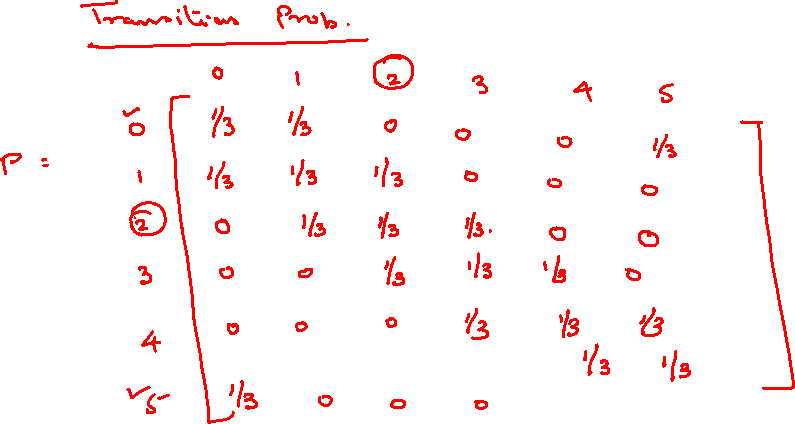 Transition Prob.
0 1 2 3 4 5
✓0 1/3 1/3 0 0 0 1/3
P =
1 1/3 1/3 1/3 0 0 0
2 0 1/3 1/3 1/3. 0 0
3 0 0 1/3 1/3 1/3 0
4 0 0 0 1/3 1/3 1/3
✓5 1/3 0 0 0 1/3 1/3